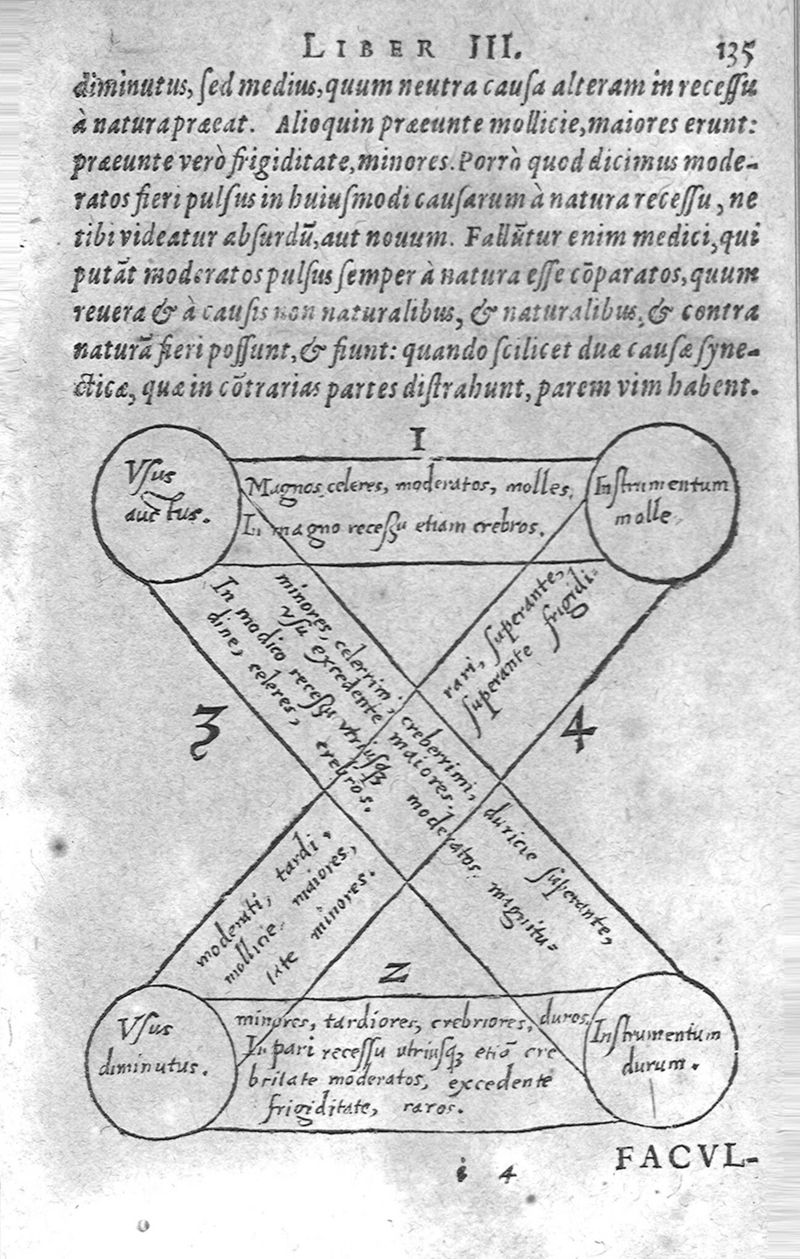 LIBER III. 135
diminutus, ſed medius, quum neutra cauſa alteram in receſſu
à natura præeat. Alioquin præeunte mollicie, maiores erunt:
præeunte verò frigiditate, minores. Porrò quod dicimus mode-
ratos fieri pulſus in huiuſmodi cauſarum à natura receſſu, ne
tibi videatur abſurdũ, aut nouum. Fallũtur enim medici, qui
putãt moderatos pulſus ſemper à natura eſſe cõparatos, quum
reuera & à cauſis non naturalibus, & naturalibus, & contra
naturã fieri poſſunt, & fiunt: quando ſcilicet duæ cauſæ ſyne-
cticæ, quæ in cõtrarias partes diſtrahunt, parem vim habent.
1
Vſus
auctus.
Magnos, celeres, moderatos, molles.
In magno receſſu etiam crebros.
Inſtrumentum
molle.
3
minores, celerrimi, creberrimi, duricie ſuperante,
vſu excedente maiores.
In modico receſſu vtriuſqꝫ moderatos, magnitu-
dine, celeres, crebros.
4
rari, ſuperante,
ſuperante frigidi-
moderati, tardi,
mollicie, maiores,
tate minores.
2
Vſus
diminutus.
minores, tardiores, crebriores, duros.
In pari receſſu utriuſqꝫ etiã cre
britate moderatos, excedente
frigiditate, raros.
Inſtrumentum
durum.
i 4
FACVL-